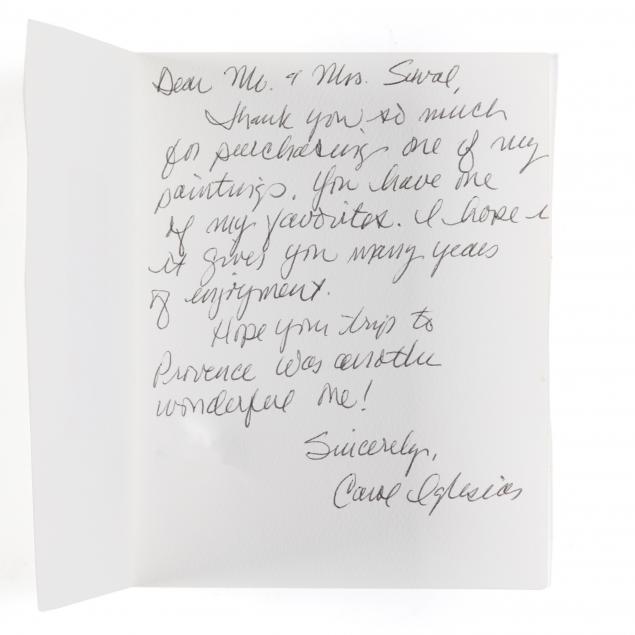 Dear Mr. & Mrs. Suval,
Thank you so much
for purchasing one of my
paintings. You have one
of my favorites. I hope i
it gives you many years
of enjoyment.
Hope your trip to
Provence was another
wonderful one!
Sincerely,
Carol Iglesias